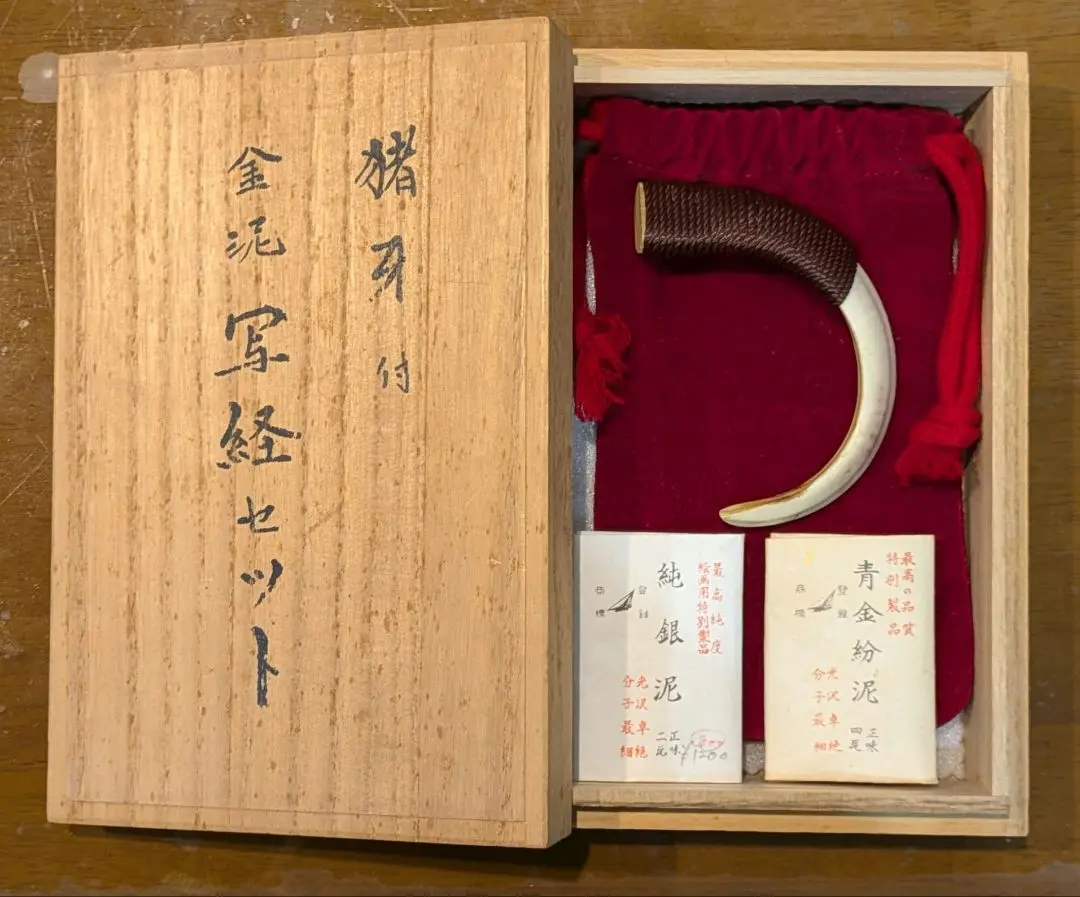 猪牙付
金泥写経セット
最高純度
絵画用特別製品
純銀泥
正味
二瓦
登録
商標
光沢卓絶
分子最細
1200
最高の品質
特別製品
青金紛泥
正味
四瓦
登録
商標
光沢卓絶
分子最細